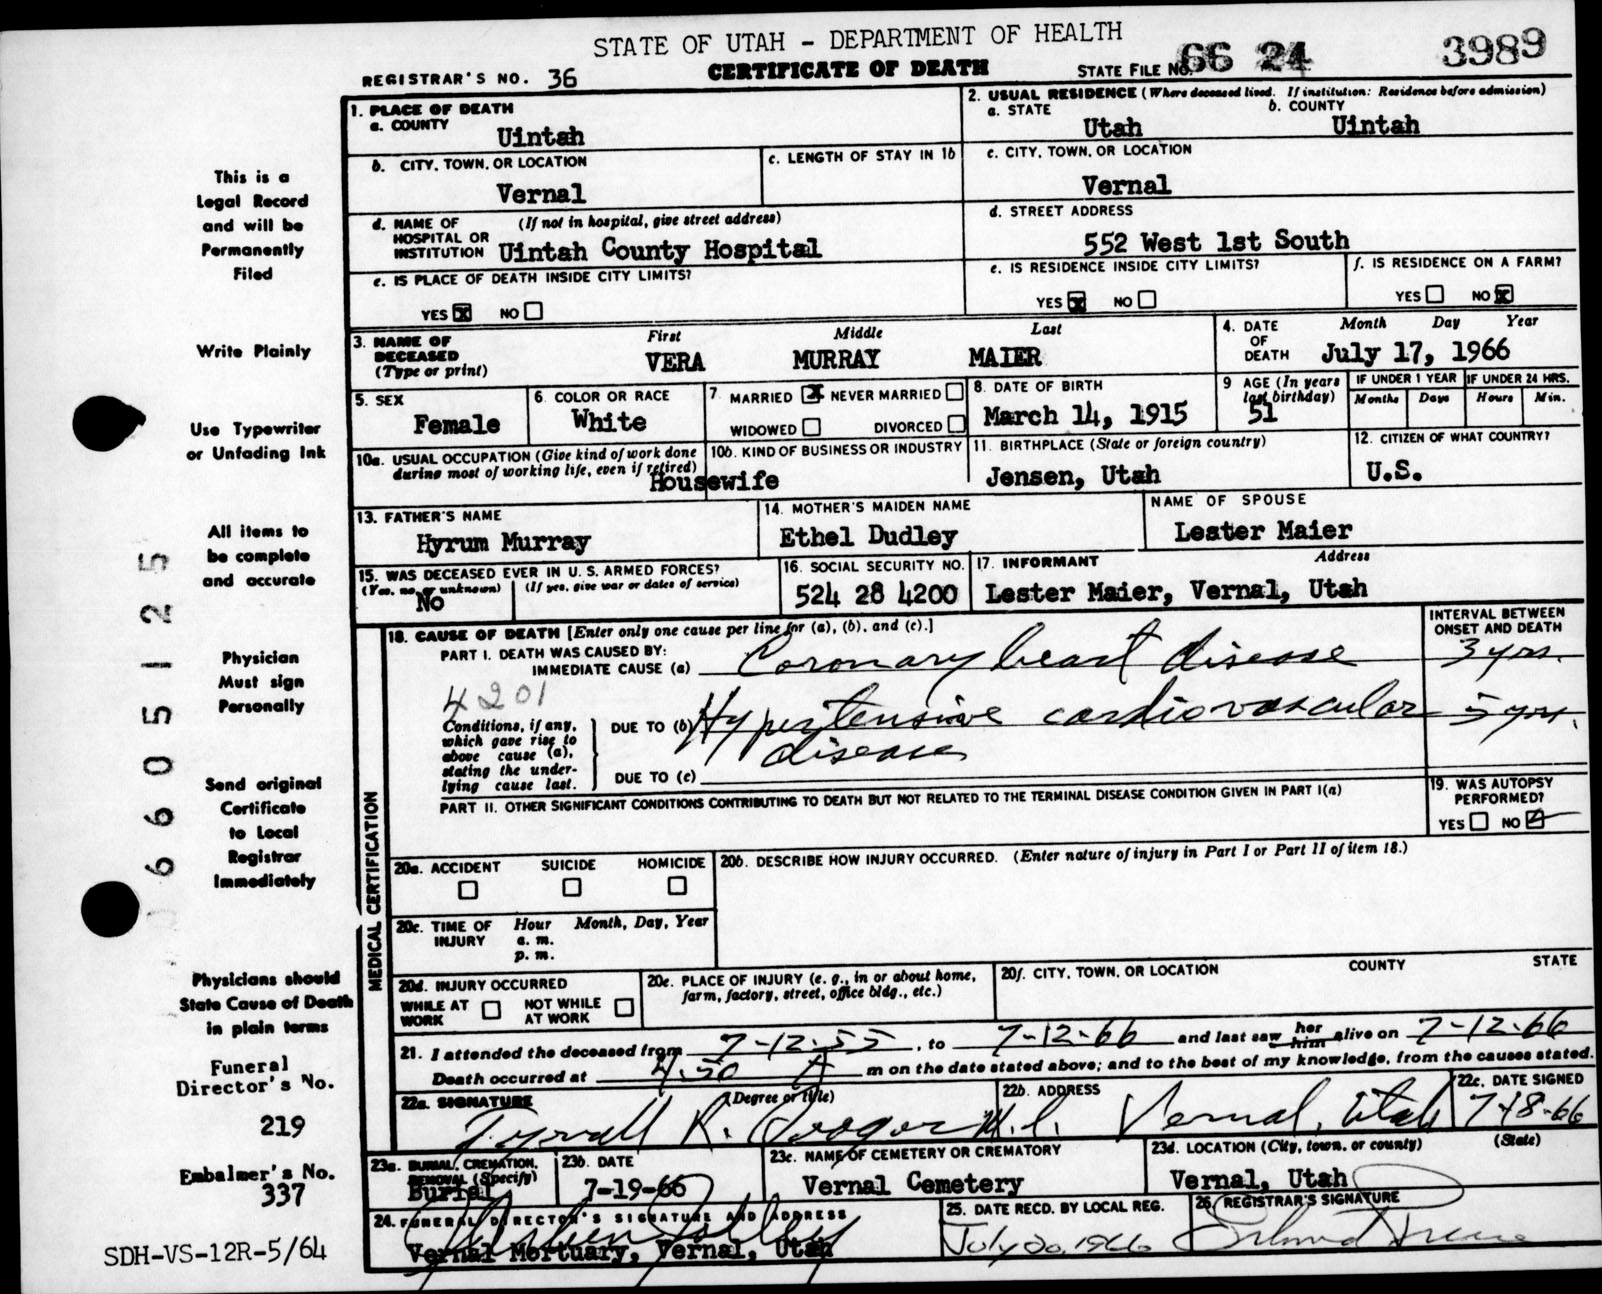 STATE OF UTAH - DEPARTMENT OF HEALTH
CERTIFICATE OF DEATH
REGISTRAR'S NO. 36
STATE FILE NO. 66 24 3989
This is a
Legal Record
and will be
Permanently
Filed
Write Plainly
Use Typewriter
or Unfading Ink
All items to
be complete
and accurate
Physician
Must sign
Personally
Send original
Certificate
to Local
Registrar
Immediately
Physicians should
State Cause of Death
in plain terms
Funeral
Director's No.
219
Embalmer's No.
337
SDH-VS-12R-5/64
66051 25
1. PLACE OF DEATH
a. COUNTY
Uintah
2. USUAL RESIDENCE (Where deceased lived. If institution: Residence before admission)
a. STATE b. COUNTY
Utah Uintah
b. CITY, TOWN, OR LOCATION
Vernal
c. LENGTH OF STAY IN 1b
c. CITY, TOWN, OR LOCATION
Vernal
d. NAME OF HOSPITAL OR INSTITUTION (If not in hospital, give street address)
Uintah County Hospital
d. STREET ADDRESS
552 West 1st South
e. IS PLACE OF DEATH INSIDE CITY LIMITS?
YES X NO
e. IS RESIDENCE INSIDE CITY LIMITS?
YES X NO
f. IS RESIDENCE ON A FARM?
YES NO X
3. NAME OF DECEASED (Type or print)
First Middle Last
VERA MURRAY MAIER
4. DATE OF DEATH Month Day Year
July 17, 1966
5. SEX
Female
6. COLOR OR RACE
White
7. MARRIED X NEVER MARRIED
WIDOWED DIVORCED
8. DATE OF BIRTH
March 14, 1915
9 AGE (In years last birthday)
51
IF UNDER 1 YEAR IF UNDER 24 HRS.
Months Days Hours Min.
10a. USUAL OCCUPATION (Give kind of work done during most of working life, even if retired)
Housewife
10b. KIND OF BUSINESS OR INDUSTRY
11. BIRTHPLACE (State or foreign country)
Jensen, Utah
12. CITIZEN OF WHAT COUNTRY?
U.S.
13. FATHER'S NAME
Hyrum Murray
14. MOTHER'S MAIDEN NAME
Ethel Dudley
NAME OF SPOUSE
Lester Maier
15. WAS DECEASED EVER IN U. S. ARMED FORCES?
(Yes, no, or unknown) (If yes, give war or dates of service)
No
16. SOCIAL SECURITY NO.
524 28 4200
17. INFORMANT Address
Lester Maier, Vernal, Utah
MEDICAL CERTIFICATION
18. CAUSE OF DEATH [Enter only one cause per line for (a), (b), and (c).]
INTERVAL BETWEEN ONSET AND DEATH
PART I. DEATH WAS CAUSED BY:
IMMEDIATE CAUSE (a) Coronary heart disease 3 yrs.
4201
Conditions, if any, which gave rise to above cause (a), stating the underlying cause last.
DUE TO (b) Hypertensive cardiovascular disease 5 yrs.
DUE TO (c)
PART II. OTHER SIGNIFICANT CONDITIONS CONTRIBUTING TO DEATH BUT NOT RELATED TO THE TERMINAL DISEASE CONDITION GIVEN IN PART I(a)
19. WAS AUTOPSY PERFORMED?
YES NO
20a. ACCIDENT SUICIDE HOMICIDE
20b. DESCRIBE HOW INJURY OCCURRED. (Enter nature of injury in Part I or Part II of item 18.)
20c. TIME OF INJURY Hour Month, Day, Year
a. m.
p. m.
20d. INJURY OCCURRED
WHILE AT WORK NOT WHILE AT WORK
20e. PLACE OF INJURY (e. g., in or about home, farm, factory, street, office bldg., etc.)
20f. CITY, TOWN, OR LOCATION COUNTY STATE
21. I attended the deceased from 7-12-55, to 7-12-66 and last saw her him alive on 7-12-66
Death occurred at 4:50 A m on the date stated above; and to the best of my knowledge, from the causes stated.
22a. SIGNATURE (Degree or title)
M.D.
22b. ADDRESS
Vernal, Utah
22c. DATE SIGNED
7-18-66
23a. BURIAL, CREMATION, REMOVAL (Specify)
Burial
23b. DATE
7-19-66
23c. NAME OF CEMETERY OR CREMATORY
Vernal Cemetery
23d. LOCATION (City, town, or county) (State)
Vernal, Utah
24. FUNERAL DIRECTOR'S SIGNATURE AND ADDRESS
Vernal Mortuary, Vernal, Utah
25. DATE RECD. BY LOCAL REG.
July 20, 1966
26 REGISTRAR'S SIGNATURE